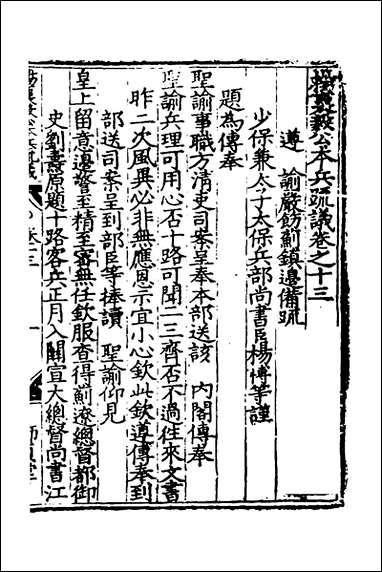 楊襄毅公本兵疏議卷之十三
遵　諭嚴飭薊鎮邊備疏
少保兼太子太保兵部尚書臣楊博等謹
題為傳奉
聖諭事職方清吏司案呈奉本部送該　內閣傳奉
聖諭兵理可用心否十路可聞二三齊否不過徃來文書
昨二次風異必非無應恩示宜小心欽此欽遵傳奉到
部送司案呈到部臣等捧讀　聖諭仰見
皇上留意邊警至精至審無任欽服查得薊遼總督都御
史劉燾原題十路客兵正月入關宣大總督尚書江